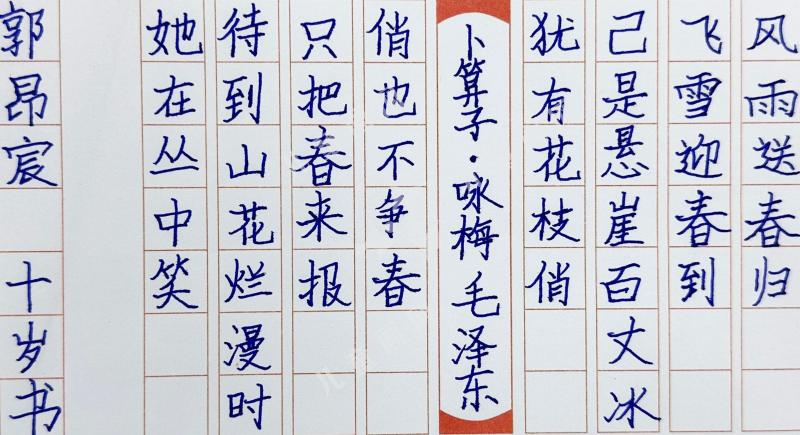 风雨送春归
飞雪迎春到
己是悬崖百丈冰
犹有花枝俏
卜算子·咏梅 毛泽东
俏也不争春
只把春来报
待到山花烂漫时
她在丛中笑
郭昂宸 十岁书